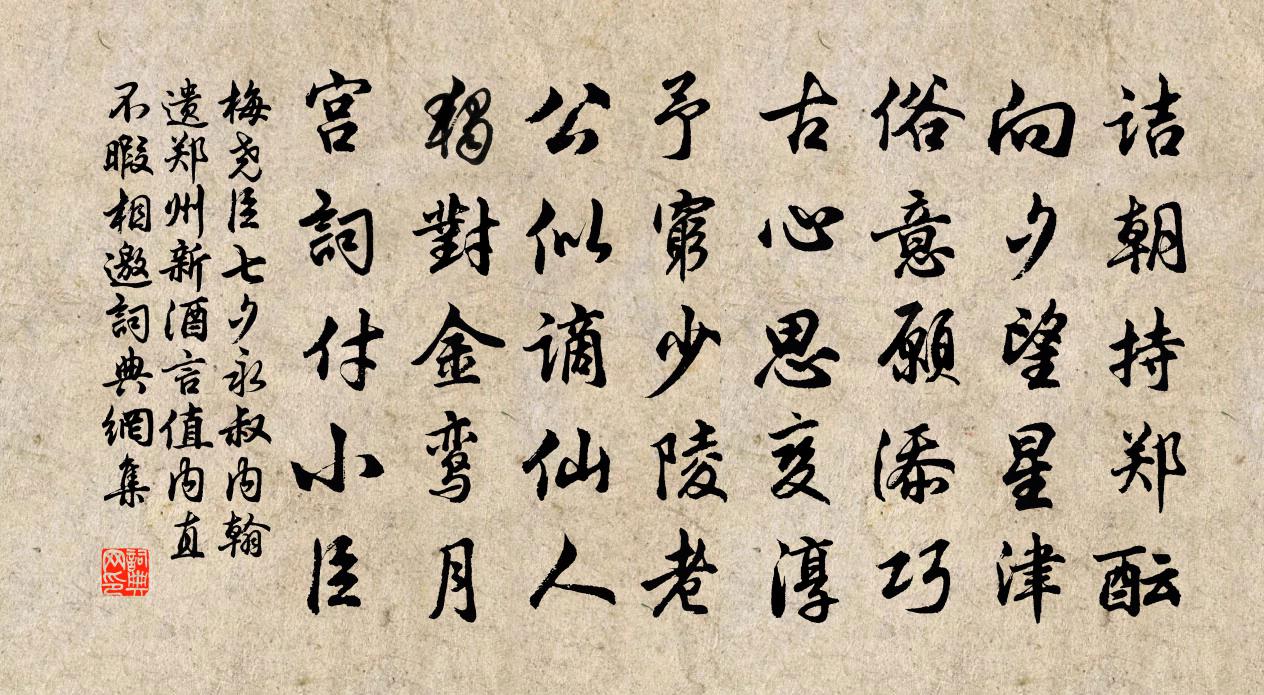 诘朝持郑酝
向夕望星津
俗意愿添巧
古心思变淳
予穷少陵老
公似谪仙人
独對金鸾月
宫詞付小臣
梅尧臣七夕永叔内翰
遗郑州新酒言值内直
不暇相邀詞典網集